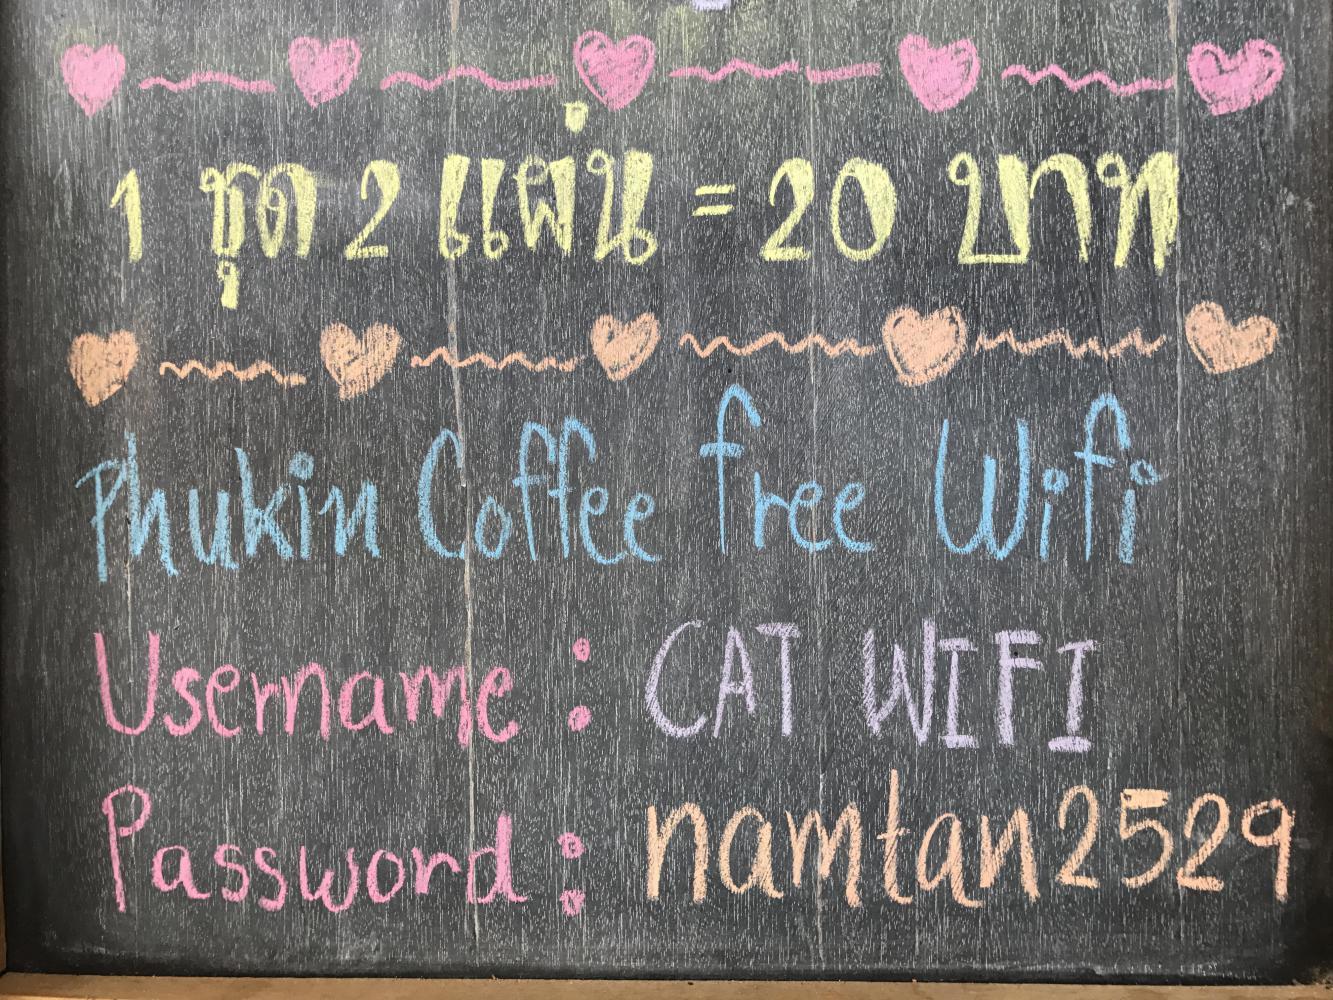 1 ชุด 2 แผ่น = 20 บาท
Phukin Coffee free Wifi
Username : CAT WIFI
Password : namtan2529